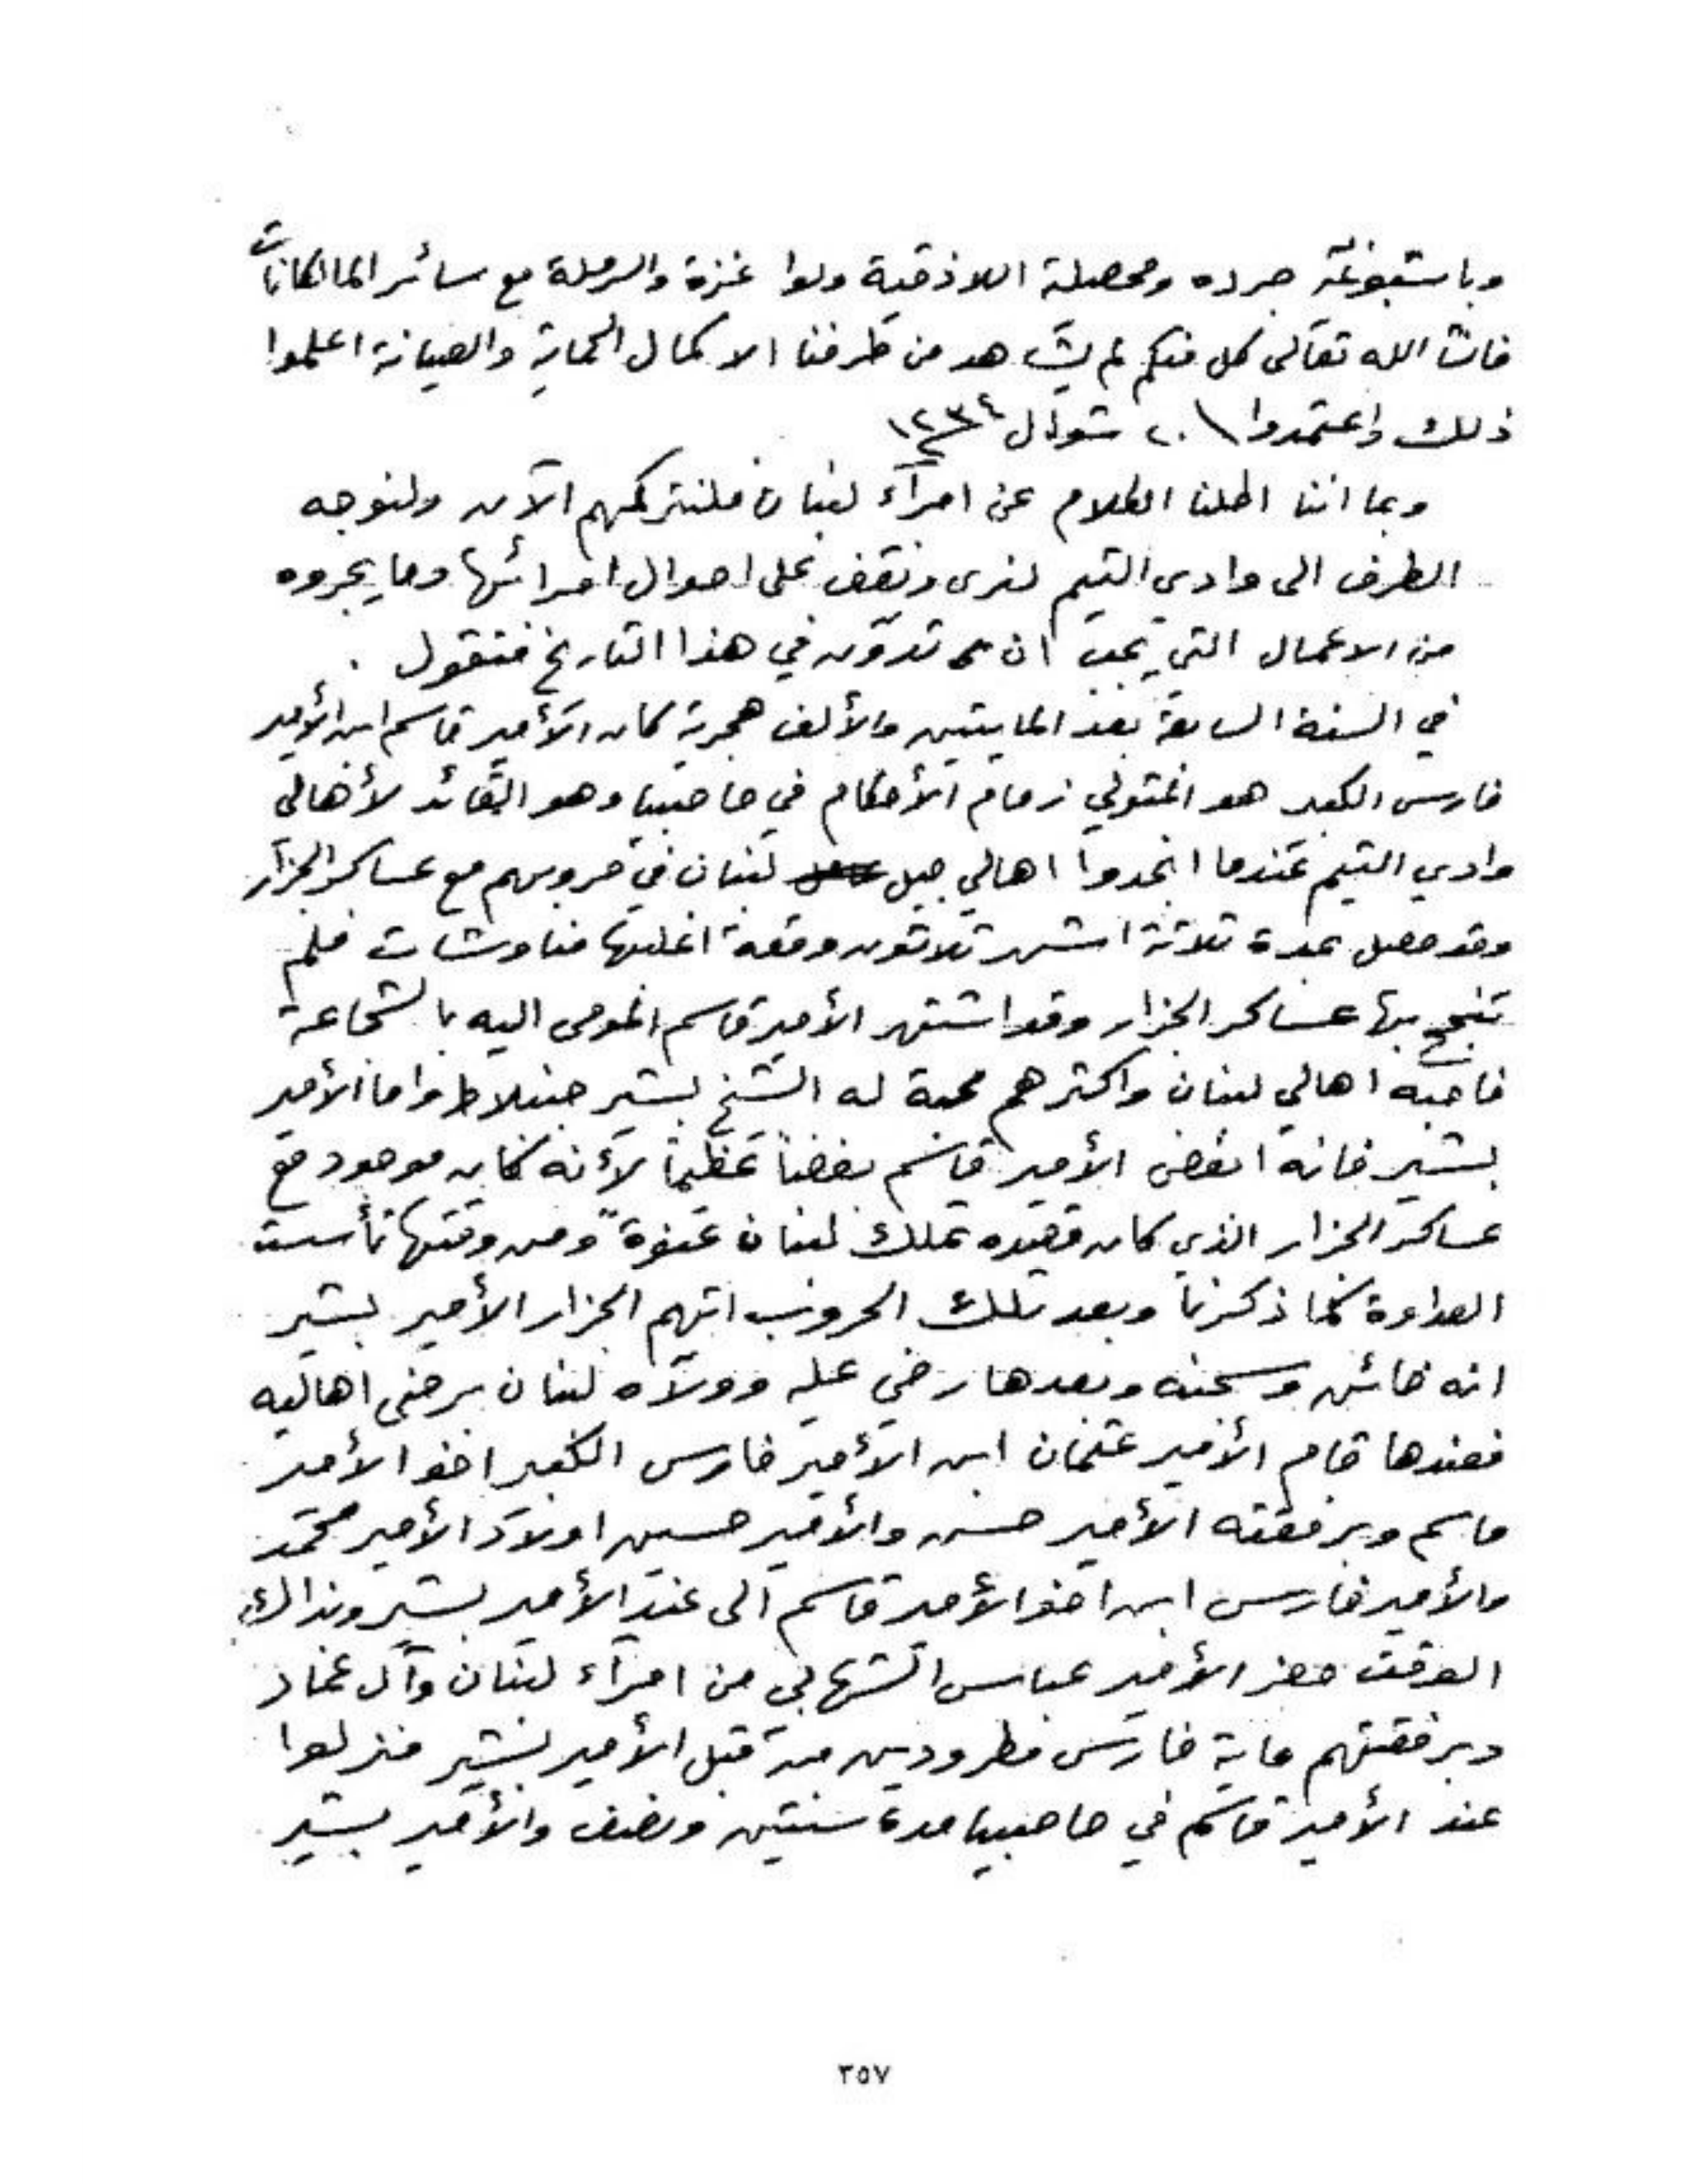 وباشبوغية جرده ومحصيلة اللاذقية ولوا غزة والرملة مع سائر المالكانات
فانشا الله تعالى كل منكم لم يشاهد من طرفنا الا كمال الحماية والصيانة اعلموا
ذلك واعتمدوا \ ٢٠ شوال سنة ١٢٣٤
وبما اننا اطلنا الكلام عن امرآء لبنان فلنتركهم الآن ولنوجه
الطرف الى وادي التيم لنرى ونقف على احوال امرائها وما يجروه
من الاعمال التي يجب ان تدوّن في هذا التاريخ فنقول .
في السنة السابعة بعد المايتين والألف هجرية كان الأمير قاسم ابن الأمير
فارس الكبير هو المتولي زمام الأحكام في حاصبيا وهو القائد لأهالي
وادي التيم عندما انجدوا اهالي جبل لبنان في حروبهم مع عساكر الجزار
وقد حصل بمدة ثلاثة اشهر ثلاثون وقعة اغلبها مناوشات فلم
تنجح بها عساكر الجزار وقد اشتهر الأمير قاسم المومى اليه بالشجاعة
فاحبه اهالي لبنان واكثرهم محبة له الشيخ بشير جنبلاط واما الأمير
بشير فانه ابغض الأمير قاسم بغضاً عظيماً لأنه كان موجود مع
عساكر الجزار الذي كان قصده تملك لبنان عنوةً ومن وقتها تأسست
العداوة كما ذكرنا وبعد تلك الحروب اتهم الجزار الأمير بشير
انه خائن وسجنه وبعدها رضي عليه وولاه لبنان برضى اهاليه
فعندها قام الأمير عثمان ابن الأمير فارس الكبير اخو الأمير
قاسم وبرفقته الأمير حسن والأمير حسين اولاد الأمير محمد
والأمير فارس ابن اخو الأمير قاسم الى عند الأمير بشير وبذالك
الوقت حضر الأمير عباس الشهابي من امرآء لبنان وآل عماد
وبرفقتهم ماية فارس مطرودين من قبل الأمير بشير فنزلوا
عند الأمير قاسم في حاصبيا مدة سنتين ونصف والأمير بشير
٣٥٧